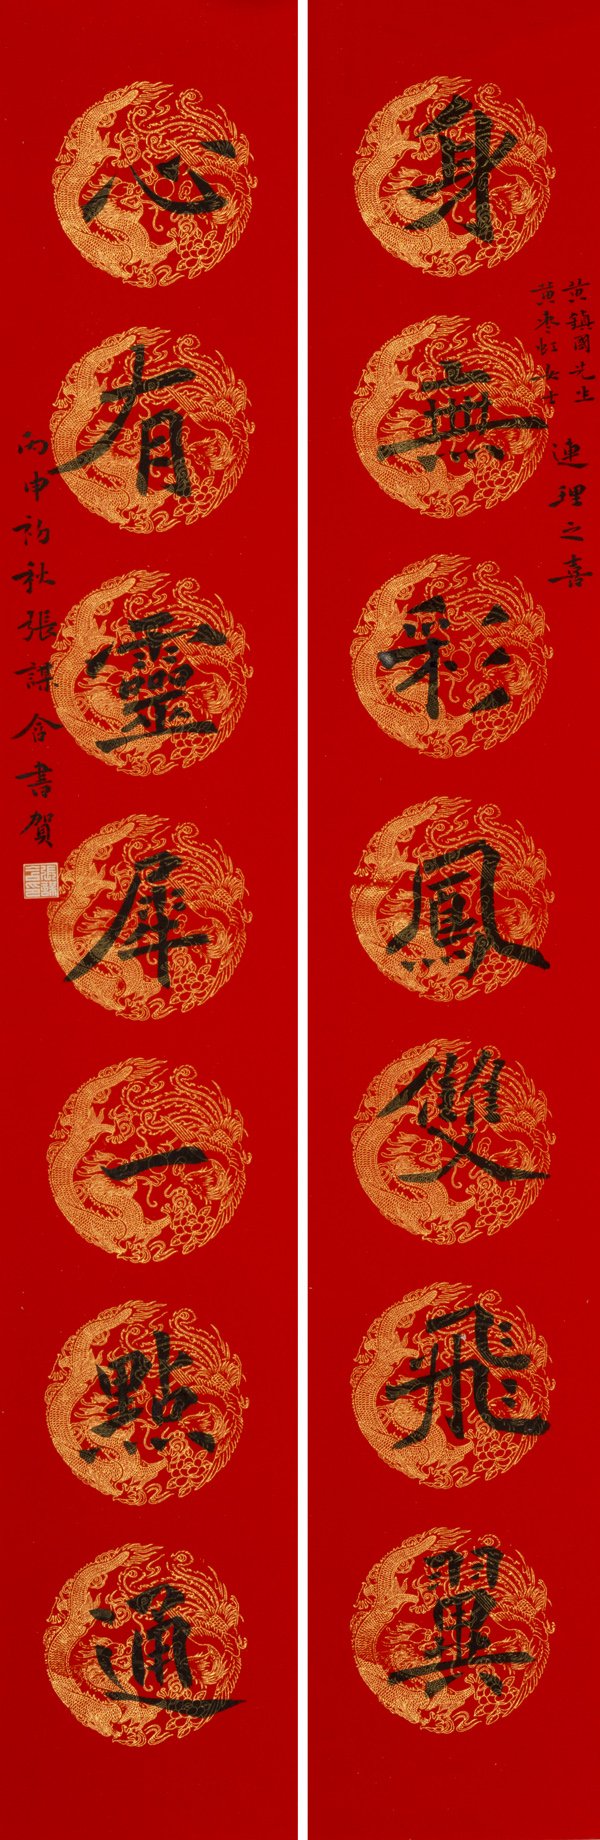 身無彩鳳雙飛翼
黄鎮國先生
黄棗虹女士
連理之喜
心有靈犀一點通
丙申初秋張謀含書賀